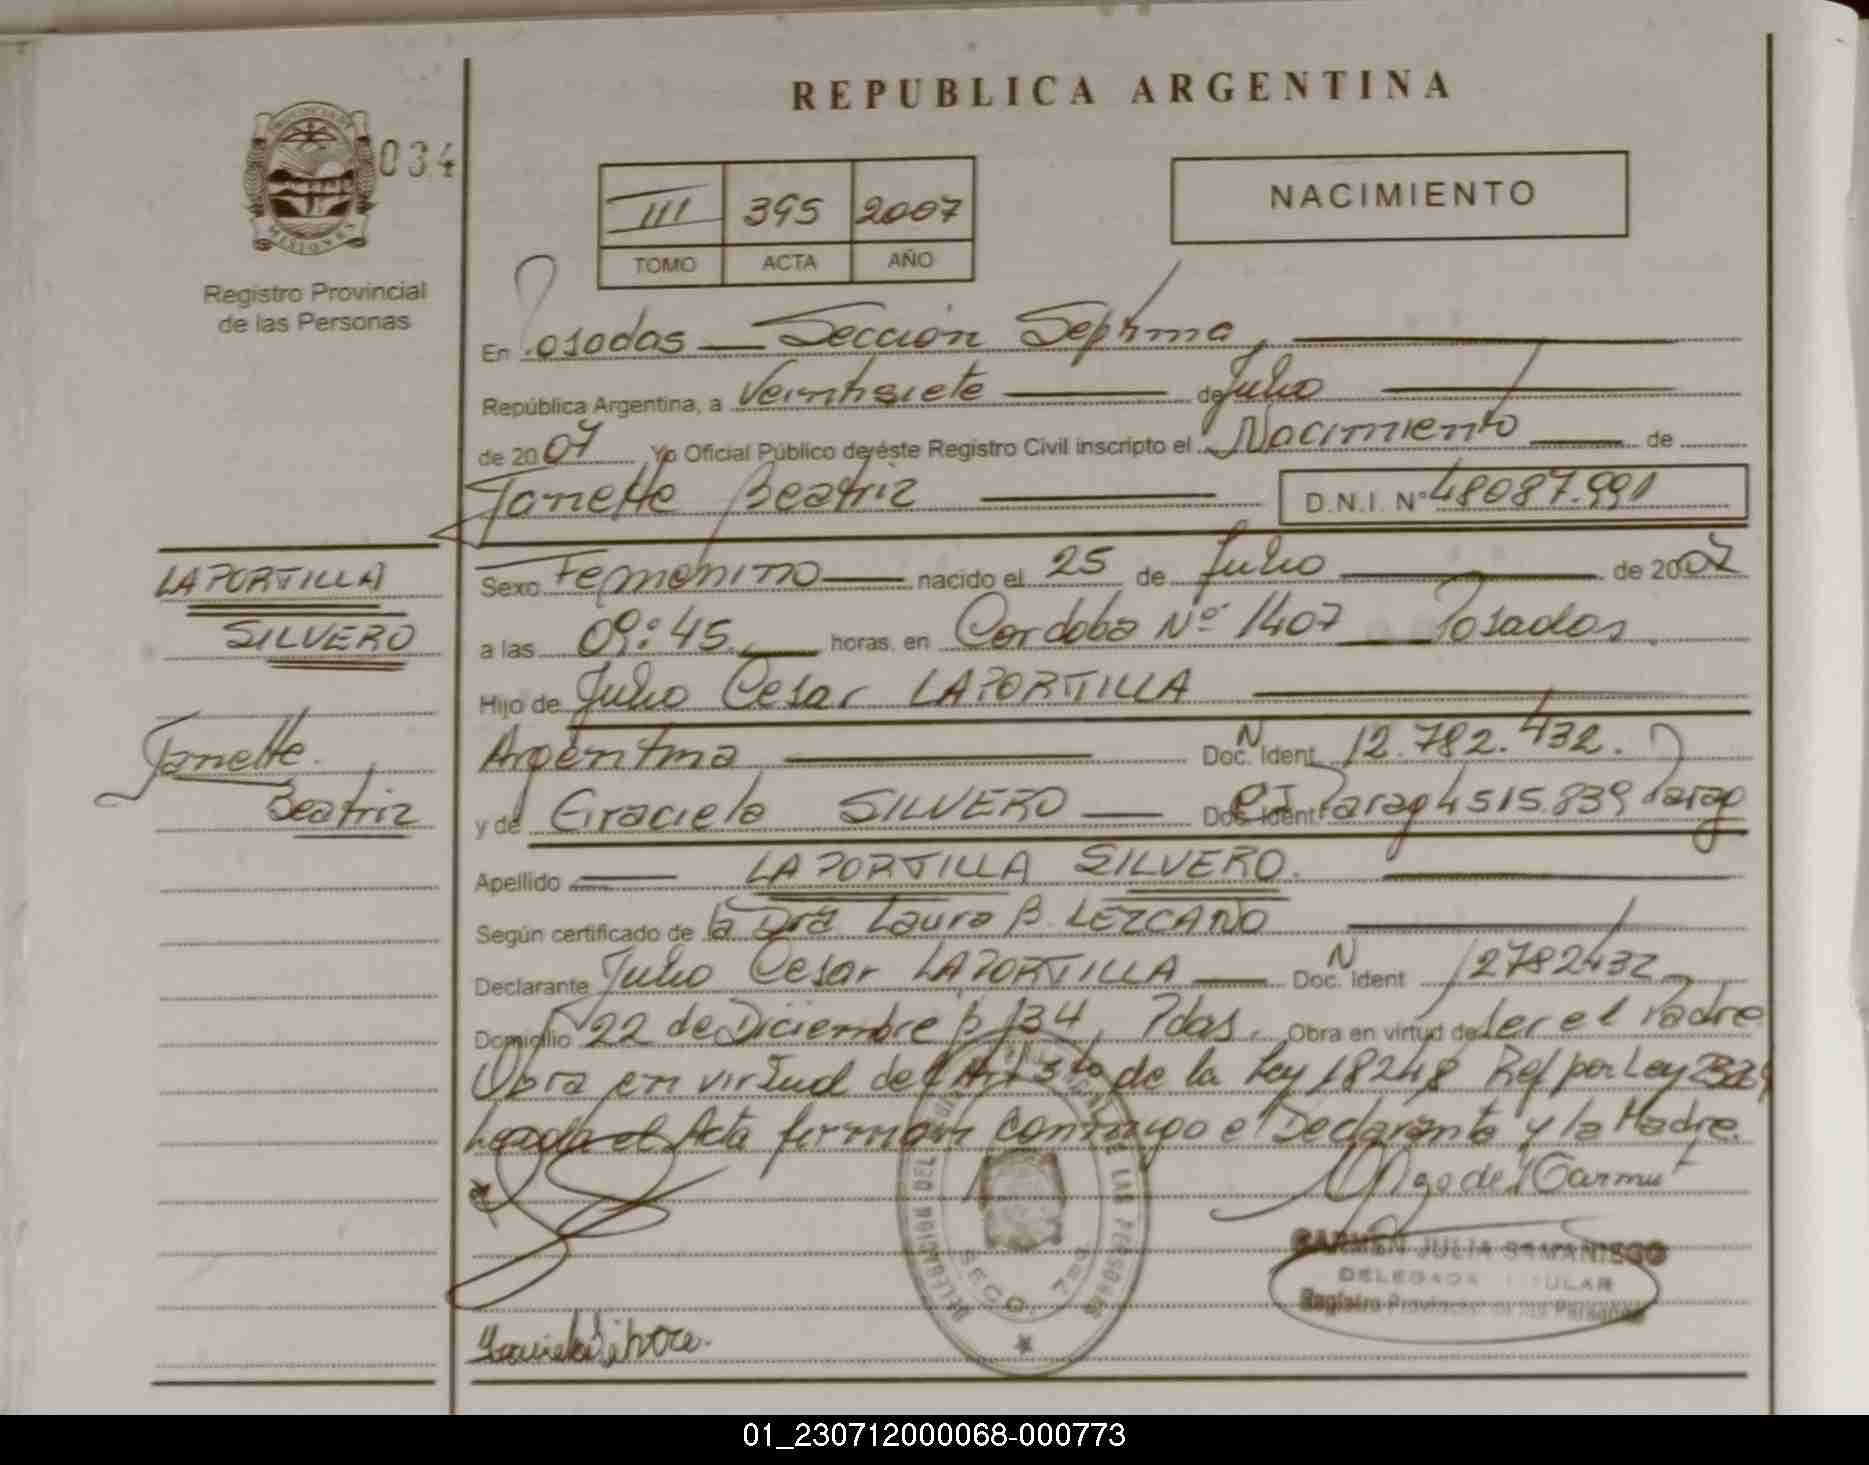 REPUBLICA ARGENTINA
PROVINCIA DE
MISIONES
034
Registro Provincial
de las Personas
III 395 2007
TOMO ACTA AÑO
NACIMIENTO
En Posadas — Sección Septima,
República Argentina, a Veintisiete de Julio
de 2007 Yo Oficial Público de éste Registro Civil inscripto el Nacimiento de
Janette Beatriz D.N.I. Nº 48087.991
LAPORTILLA
SILVERO
Janette
Beatriz
Sexo Femenino nacido el 25 de Julio de 2007
a las 09:45 horas, en Cordoba Nº 1407 — Posadas.
Hijo de Julio Cesar LAPORTILLA
Argentina Doc. Ident. N 12.782.432.
y de Graciela SILVERO Doc. Ident. CI Parag 4515.839 Parag
Apellido LAPORTILLA SILVERO.
Según certificado de la Dra Laura B. LEZCANO
Declarante Julio Cesar LAPORTILLA Doc. Ident N 12782432
Domicilio 22 de Diciembre p 134, Pdas. Obra en virtud de ser el Padre
Obra en virtud del Art 5to de la Ley 18248 Ref por Ley
Leada el Acta firman conmigo el Declarante y la Madre.
CARMEN JULIA SAMANIEGO
DELEGADA TITULAR
Registro Provincial de las Personas
SECC. 7ma
01_230712000068-000773